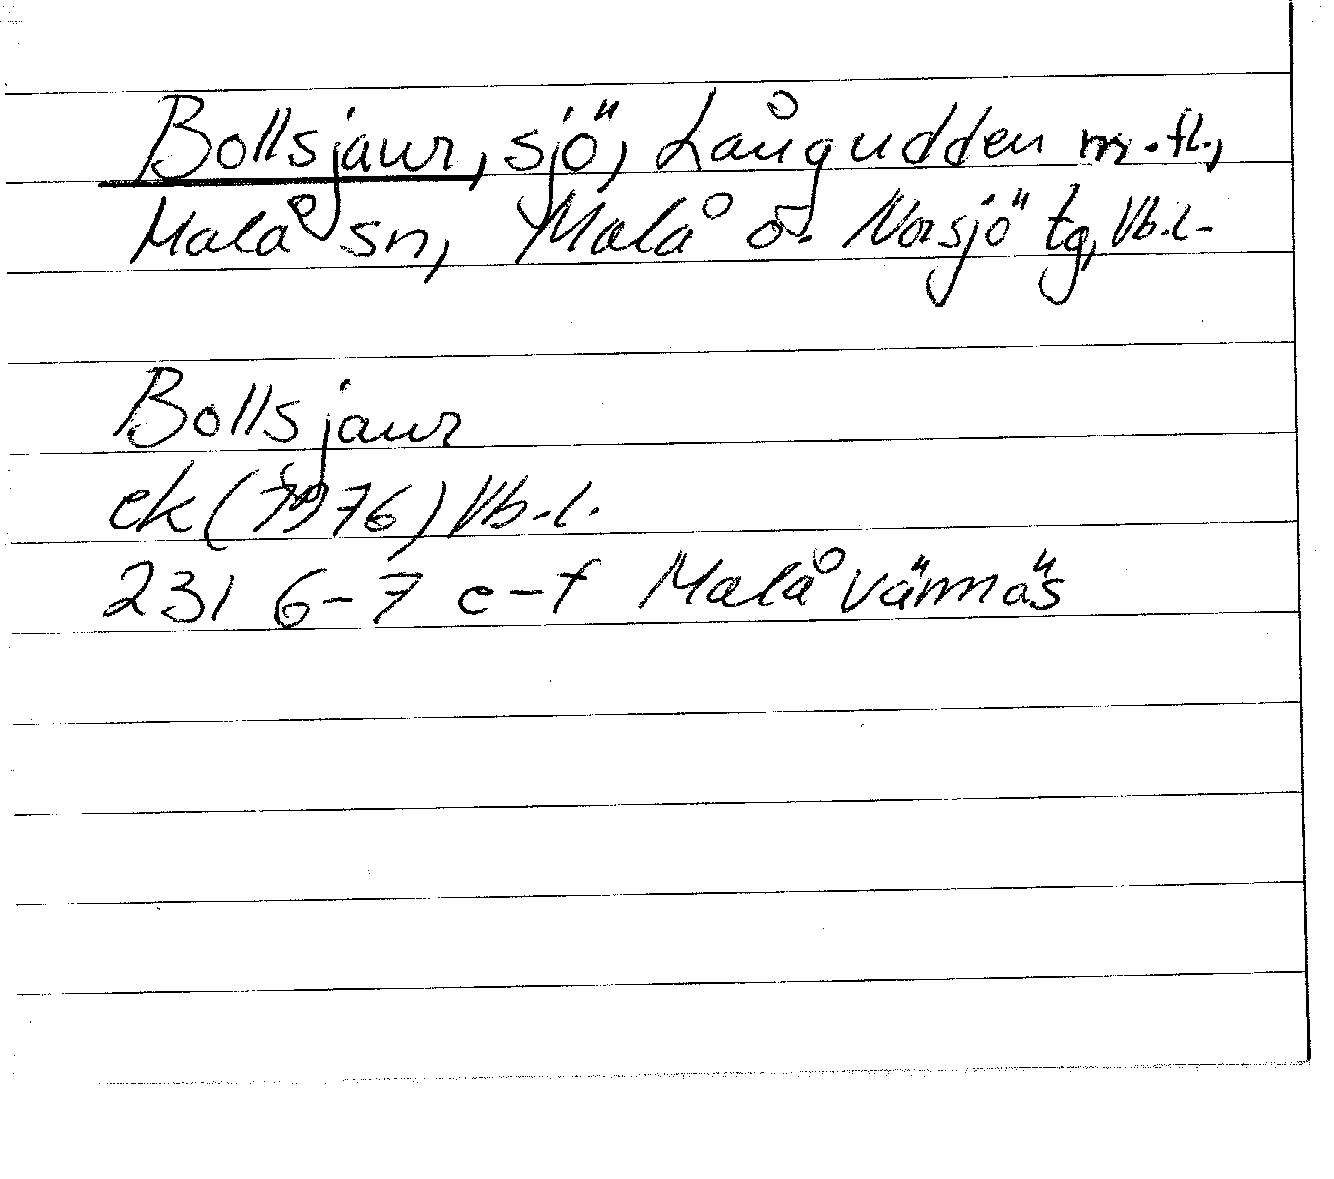 Bollsjaur, sjö, Långudden m.fl.,
Malå sn, Malå o. Norsjö tg, Vb.l.
Bollsjaur
ek (1976) Vb.l.
231 6-7 e-f Malåvännäs